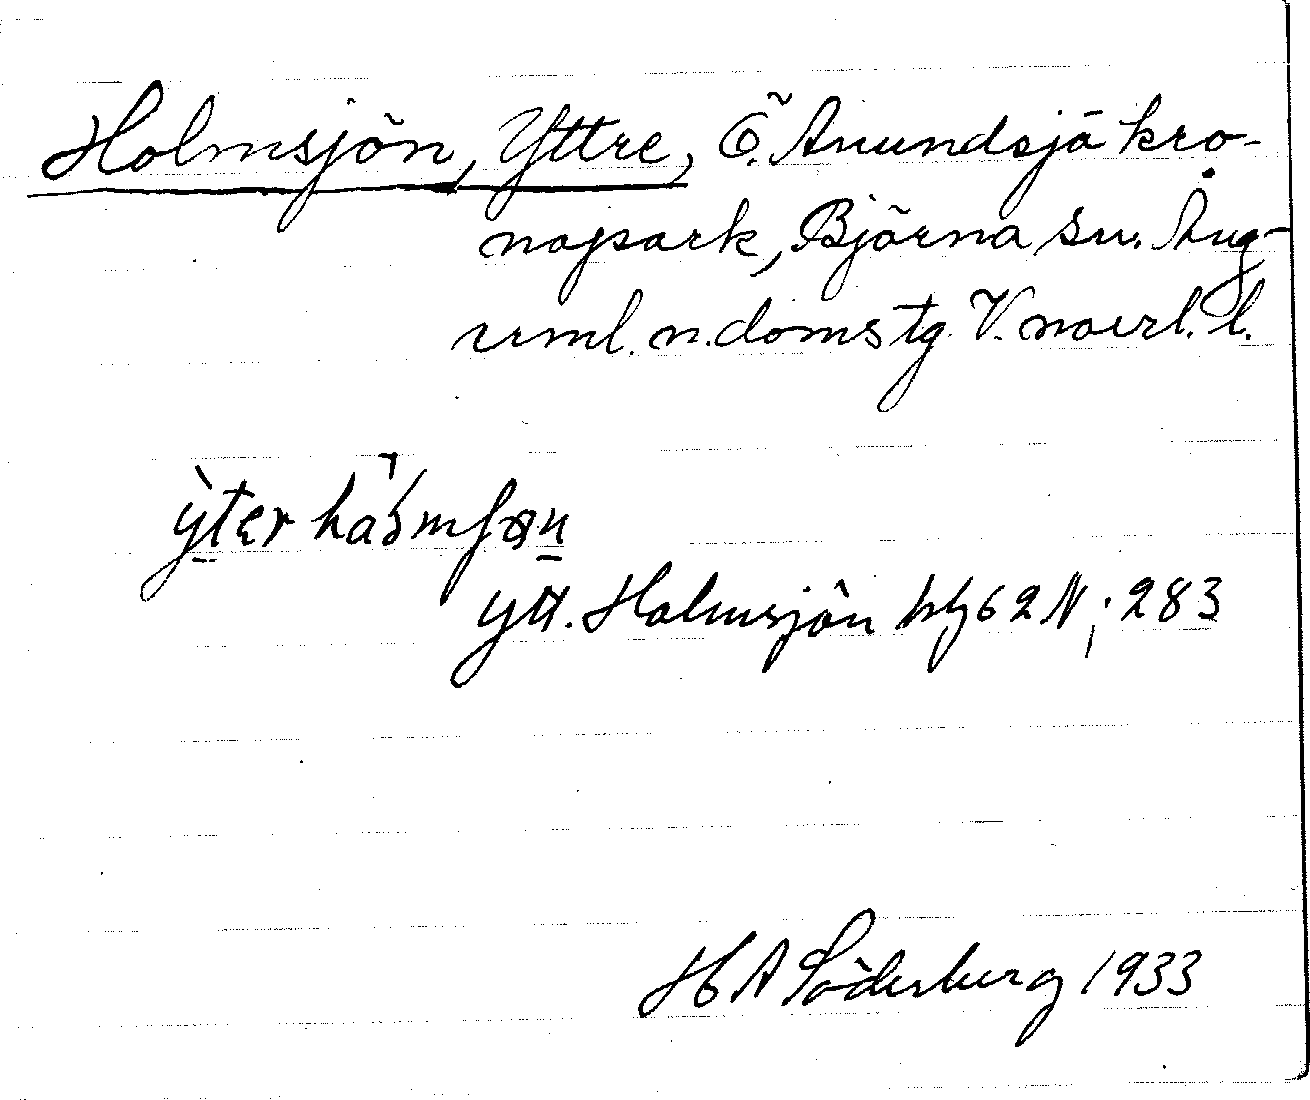 Holmsjön, Yttre, Ö. Anundsjö kro-
nopark, Björna sn. Ång-
erml. n. domstg V. norrl. l.
yter hå̀lmʃøn
ytt. Holmsjön hlz 62 N; 283
H A Söderberg 1933